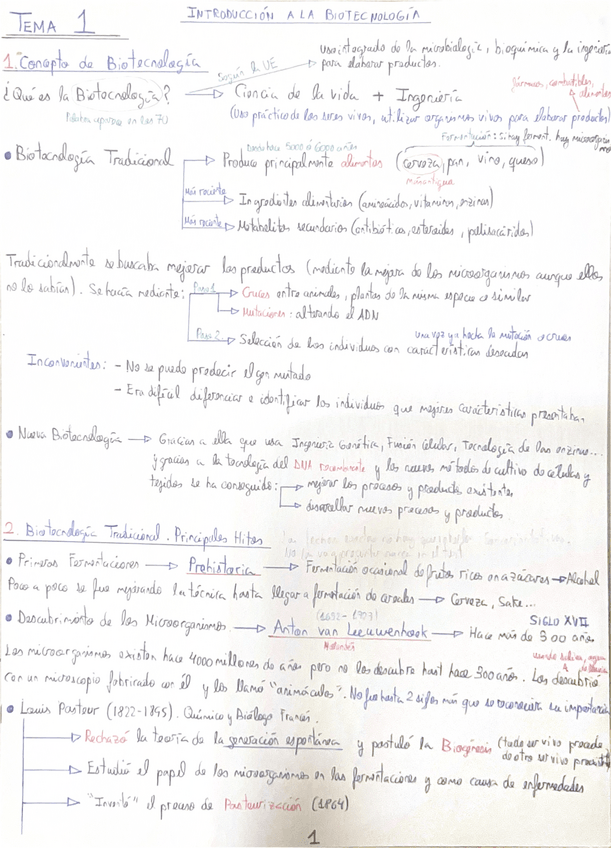 TEMA 1
INTRODUCCIÓN A LA BIOTECNOLOGÍA
1. Concepto de Biotecnología
Según la UE
Uso integrado de la microbiología, bioquímica y la ingeniería
para elaborar productos.
¿Qué es la Biotecnología? → Ciencia de la vida + Ingeniería
fármacos, combustibles,
alimentos
Palabra aparece en los 70
(Uso práctico de los seres vivos, utilizar organismos vivos para elaborar productos)
Fermentación: si hay ferment. hay microorganismos
Desde hace 5000 o 6000 años
• Biotecnología Tradicional → Produce principalmente alimentos (cerveza, pan, vino, queso)
más antigua
Más reciente → Ingredientes alimentarios (aminoácidos, vitaminas, enzimas)
Más reciente → Metabolitos secundarios (antibióticos, esteroides, polisacáridos)
Tradicionalmente se buscaba mejorar los productos (mediante la mejora de los microorganismos aunque ellos
no lo sabían). Se hacía mediante: Paso 1 → Cruces entre animales, plantas de la misma especie o similar
→ Mutaciones: alterando el ADN
Paso 2 → Selección de los individuos con características deseadas
una vez ya hecha la mutación o cruce
Inconvenientes: - No se puede predecir el gen mutado
- Era difícil diferenciar e identificar los individuos que mejores características presentaban.
• Nueva Biotecnología → Gracias a ella que usa Ingeniería Genética, Fusión celular, Tecnología de las enzimas...
y gracias a la tecnología del DNA recombinante y los nuevos métodos de cultivo de células y
tejidos se ha conseguido: → mejorar los procesos y productos existentes
→ desarrollar nuevos procesos y productos
2. Biotecnología Tradicional. Principales Hitos
• Primeras Fermentaciones → Prehistoria → Fermentación ocasional de frutos ricos en azúcares → Alcohol
Poco a poco se fue mejorando la técnica hasta llegar a fermentación de cereales → Cerveza, Sake...
(1632-1723)
SIGLO XVII
• Descubrimiento de los Microorganismos → Anton van Leeuwenhoek → Hace más de 300 años
Holandés
Los microorganismos existen hace 4000 millones de años pero no los descubre hast hace 300 años. Los descubrió
con un microscopio fabricado con él y los llamó "animáculos". No fue hasta 2 siglos más que se reconociera su importancia
• Louis Pasteur (1822-1895). Químico y Biólogo Francés.
→ Rechazó la teoría de la generación espontánea y postuló la Biogénesis (todo ser vivo procede
de otro ser vivo preexist
→ Estudió el papel de los microorganismos en las fermentaciones y como causa de enfermedades
→ "Inventó" el proceso de Pasteurización (1864)
1